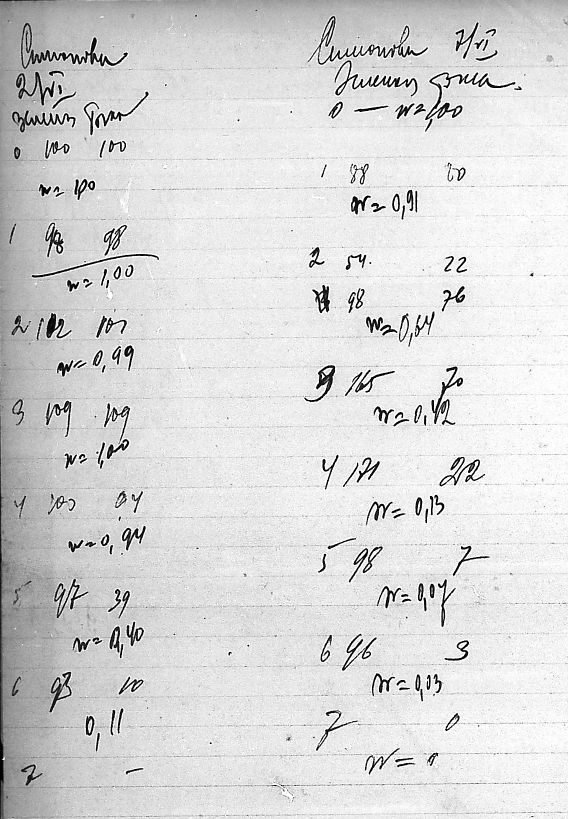 2/VI
0 100 100
w = 1,00
1 98 98
w = 1,00
2 102 101
w = 0,99
3 109 109
w = 1,00
4 100 94
w = 0,94
5 97 39
w = 0,40
6 93 10
0,11
7 —
7/VI
0 — w = 1,00
1 88 80
w = 0,91
2 54 22
98 76
w = 0,64
3 165 70
w = 0,42
4 171 22
w = 0,13
5 98 7
w = 0,07
6 96 3
w = 0,03
7 0
w = 0